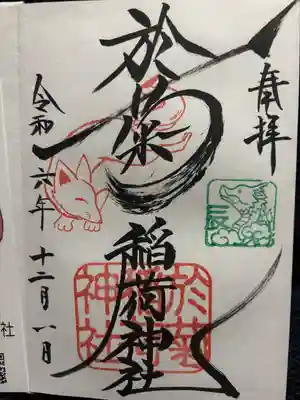 奉拝
辰
於菊稲荷神社
於菊
神社
令和六年十二月八日
社